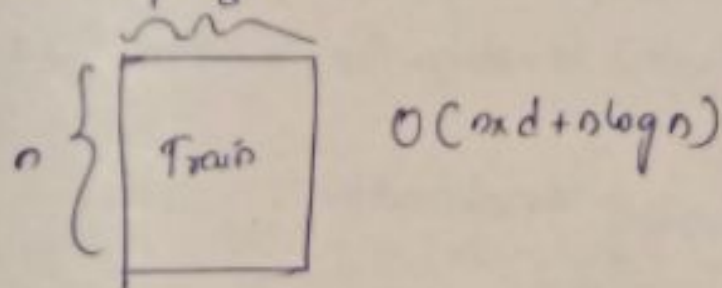 n
Train
O(nxd+nlogn)